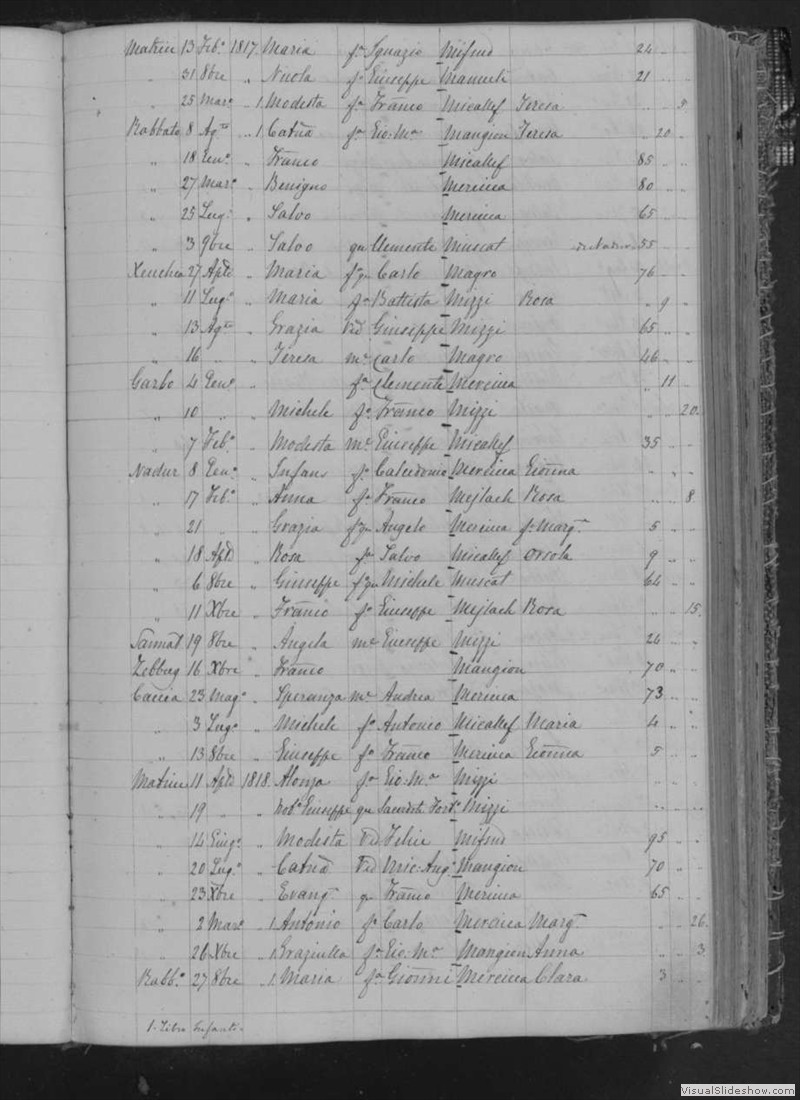 Matrice 13 Feb.o 1817. Maria f.a Ignazio Mifsud 24 " "
" 31 8bre " Nicola f.o Giuseppe Mamueli 21 " "
" 25 Mar.o " 1. Modesta f.a Franco Micallef Teresa " " 5
Rabbato 8 Ag.to " 1. Catña f.a Gio: M.a Mangion Teresa " 20 "
" 18 Gen.o " Franco Micallef 85 " "
" 27 Mar.o " Benigno Mercieca 80 " "
" 25 Lug.o " Salvo Mercieca 65 " "
" 3 9bre " Salvo qu Clemente Muscat 55 " "
Xeuchia 27 Aple " Maria f.qu Carlo Magro 76 " "
" 11 Lug.o " Maria f.a Battista Mizzi Rosa " 9 "
" 13 Ag.to " Grazia Ved Giuseppe Mizzi 65 " "
" 16 " " Teresa m.e Carlo Magro 46 " "
Garbo 4 Gen.o " f.a Clemente Mercieca " 11 "
" 10 " " Michele f.o Franco Mizzi " " 20
" 7 Feb.o " Modesta m.e Giuseppe Micallef 35 " "
Nadur 8 Gen.o " Infans f.o Calcidonio Mercieca Gionna " " "
" 17 Feb.o " Anna f.a Franco Mejlach Rosa " " 8
" 21 " " Grazia f.qu Angelo Mercieca f. Marg.ta 5 " "
" 18 Aple " Rosa f.a Salvo Micallef Orsola 9 " "
" 6 8bre " Giuseppe f.qu Michele Muscat 64 " "
" 11 Xbre " Franco f.o Giuseppe Mejlach Rosa " " 15
Sannat 19 8bre " Angela m.e Giuseppe Mizzi 24 " "
Zebbug 16 Xbre " Franco Mangion 70 " "
Caccia 23 Mag.o " Speranza m.e Andrea Mercieca 73 " "
" 3 Lug.o " Michele f.o Antonio Micallef Maria 4 " "
" 13 8bre " Giuseppe f.o Franco Mercieca Gionna 5 " "
Matrice 11 Aple 1818. Alonza f.a Gio: M.a Mizzi " " "
" 19 " " Nob.e Giuseppe qu Mizzi " " "
" 14 Giug.o " Modesta Ved Felice Mifsud 95 " "
" 20 Lug.o " Catña Ved Mangion 70 " "
" 23 Xbre " Evang.ta qu Franco Mercieca 65 " "
" 2 Mar.o " 1. Antonio f.o Carlo Mercieca Marg.ta " " 26
" 26 Xbre " 1. Graziulla f.a Gio: M.a Mangion Anna " " 3
Rabb.o 27 8bre " 1. Maria f.a Gionni Mercieca Clara 3 " "
1. Libro Infanti
VisualSlideshow.com